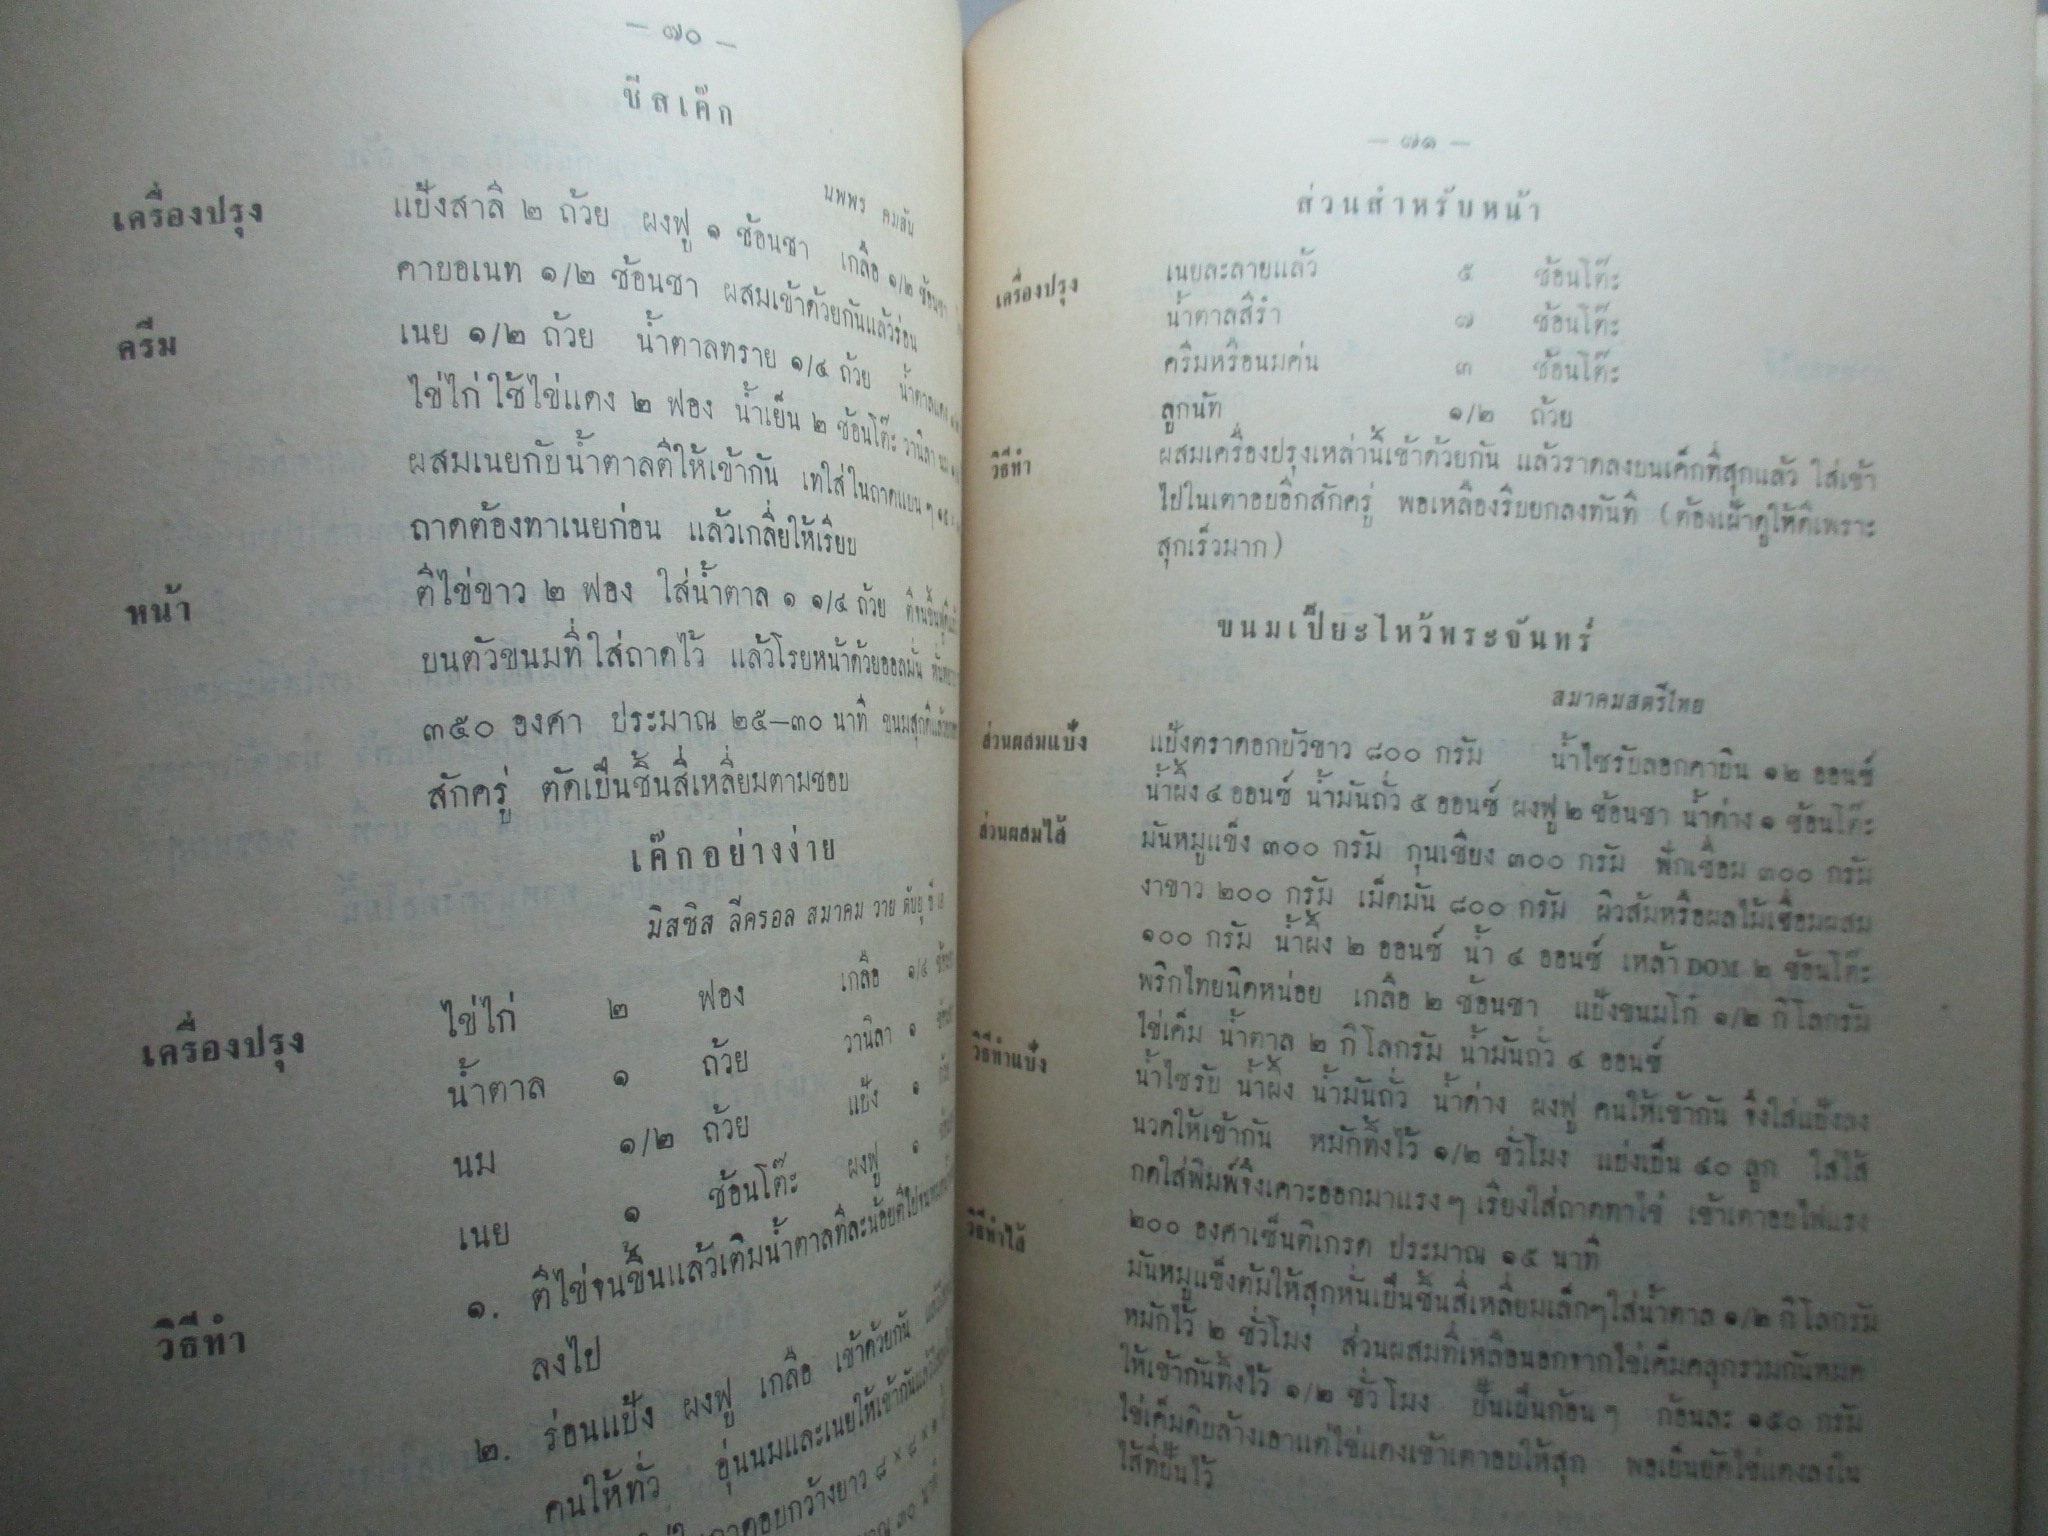 — ๗๐ —
ชีสเค๊ก
นพพร คมสัน
เครื่องปรุง แป้งสาลี ๒ ถ้วย ผงฟู ๑ ช้อนชา เกลือ ๑/๒ ช้อนชา
คายอเนท ๑/๒ ช้อนชา ผสมเข้าด้วยกันแล้วร่อน
ครีม เนย ๑/๒ ถ้วย น้ำตาลทราย ๑/๔ ถ้วย น้ำตาลแดง
ไข่ไก่ ใช้ไข่แดง ๒ ฟอง น้ำเย็น ๒ ช้อนโต๊ะ วานิลา
ผสมเนยกับน้ำตาลตีให้เข้ากัน เทใส่ในถาดแบน ๆ
ถาดต้องทาเนยก่อน แล้วเกลี่ยให้เรียบ
หน้า ตีไข่ขาว ๒ ฟอง ใส่น้ำตาล ๑ ๑/๔ ถ้วย
บนตัวขนมที่ใส่ถาดไว้ แล้วโรยหน้าด้วยออลมั่น
๓๕๐ องศา ประมาณ ๒๕—๓๐ นาที ขนมสุกดีแล้ว
สักครู่ ตัดเป็นชิ้นสี่เหลี่ยมตามชอบ
เค๊กอย่างง่าย
มิสซิส ลีครอล สมาคม วาย ดับยู ซี เอ
เครื่องปรุง ไข่ไก่ ๒ ฟอง เกลือ ๑/๔ ช้อนชา
น้ำตาล ๑ ถ้วย วานิลา ๑
นม ๑/๒ ถ้วย แป้ง ๑
เนย ๑ ช้อนโต๊ะ ผงฟู ๑
วิธีทำ ๑. ตีไข่จนขึ้นแล้วเติมน้ำตาลทีละน้อยตีไป
ลงไป
๒. ร่อนแป้ง ผงฟู เกลือ เข้าด้วยกัน
คนให้ทั่ว อุ่นนมและเนยให้เข้ากันแล้ว
ถาดอบกว้างยาว ๘ × ๘ ×
๓๐ นาที
— ๗๑ —
ส่วนสำหรับหน้า
เครื่องปรุง เนยละลายแล้ว ๕ ช้อนโต๊ะ
น้ำตาลสีรำ ๗ ช้อนโต๊ะ
ครีมหรือนมค่น ๓ ช้อนโต๊ะ
ลูกนัท ๑/๒ ถ้วย
วิธีทำ ผสมเครื่องปรุงเหล่านี้เข้าด้วยกัน แล้วราดลงบนเค็กที่สุกแล้ว ใส่เข้า
ไปในเตาอบอีกสักครู่ พอเหลืองรีบยกลงทันที (ต้องเฝ้าดูให้ดีเพราะ
สุกเร็วมาก)
ขนมเปี๊ยะไหว้พระจันทร์
สมาคมสตรีไทย
ส่วนผสมแป้ง แป้งตราดอกบัวขาว ๘๐๐ กรัม น้ำไซรับลอกคายิน ๑๒ ออนซ์
น้ำผึ้ง ๔ ออนซ์ น้ำมันถั่ว ๕ ออนซ์ ผงฟู ๒ ช้อนชา น้ำด่าง ๑ ช้อนโต๊ะ
ส่วนผสมไส้ มันหมูแข็ง ๓๐๐ กรัม กุนเชียง ๓๐๐ กรัม ฟักเชื่อม ๓๐๐ กรัม
งาขาว ๒๐๐ กรัม เม็ดมัน ๘๐๐ กรัม ผิวส้มหรือผลไม้เชื่อมผสม
๑๐๐ กรัม น้ำผึ้ง ๒ ออนซ์ น้ำ ๔ ออนซ์ เหล้า DOM ๒ ช้อนโต๊ะ
พริกไทยนิดหน่อย เกลือ ๒ ช้อนชา แป้งขนมโก๋ ๑/๒ กิโลกรัม
ไข่เค็ม น้ำตาล ๒ กิโลกรัม น้ำมันถั่ว ๔ ออนซ์
วิธีทำแป้ง น้ำไซรับ น้ำผึ้ง น้ำมันถั่ว น้ำด่าง ผงฟู คนให้เข้ากัน จึงใส่แป้งลง
นวดให้เข้ากัน หมักทิ้งไว้ ๑/๒ ชั่วโมง แบ่งเป็น ๔๐ ลูก ใส่ไส้
กดใส่พิมพ์จึงเคาะออกมาแรงๆ เรียงใส่ถาดทาไข่ เข้าเตาอบไฟแรง
๒๐๐ องศาเซ็นติเกรด ประมาณ ๑๕ นาที
วิธีทำไส้ มันหมูแข็งต้มให้สุกหั่นเป็นชิ้นสี่เหลี่ยมเล็กๆใส่น้ำตาล ๑/๒ กิโลกรัม
หมักไว้ ๒ ชั่วโมง ส่วนผสมที่เหลือนอกจากไข่เค็มคลุกรวมกันหมด
ให้เข้ากันทิ้งไว้ ๑/๒ ชั่วโมง ปั้นเป็นก้อนๆ ก้อนละ ๑๕๐ กรัม
ไข่เค็มดิบล้างเอาแต่ไข่แดงเข้าเตาอบให้สุก พอเย็นยัดไข่แดงลงใน
ไส้ที่ปั้นไว้